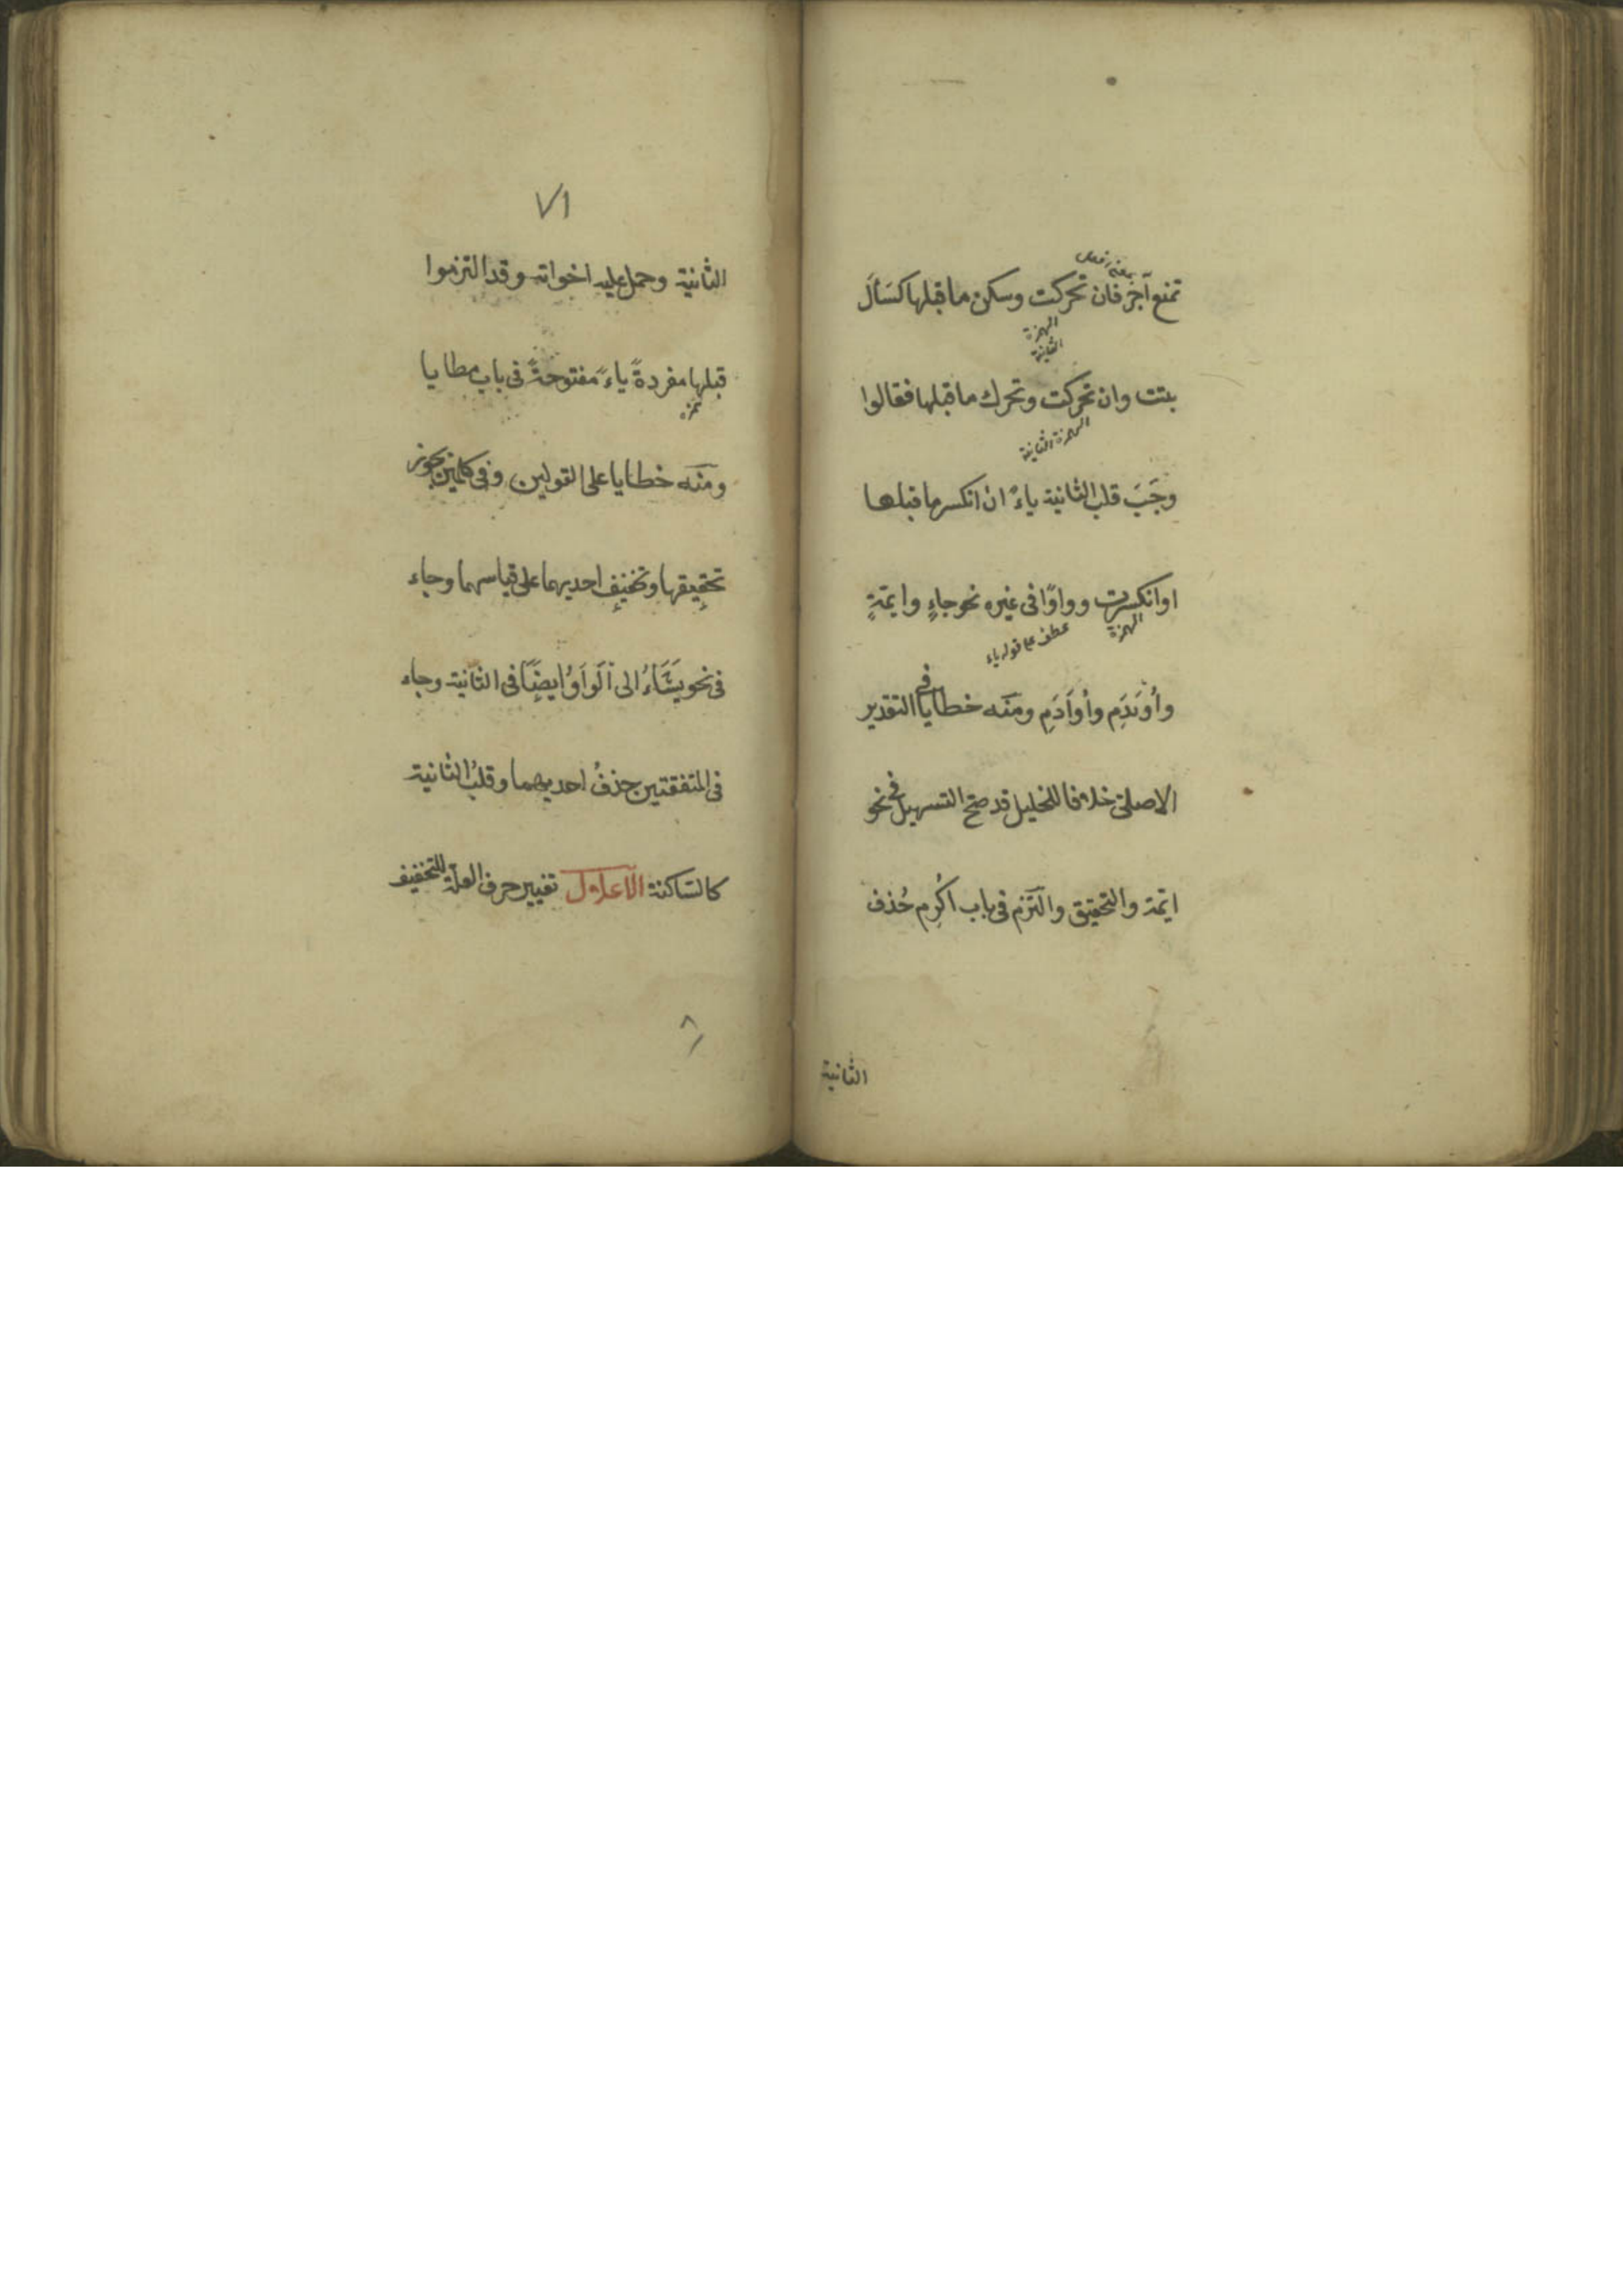 تمنع آجر فان تحركت وسكن ما قبلها كسَأَلَ
الهمزة
الثانية
بتت وان تحركت وتحرك ما قبلها فقالوا
الهمزة الثانية
وجَبَ قلب الثانية ياءً ان انكسر ما قبلها
او انكسرت وواوًا فى غيره نحو جاءٍ وايمّةٍ
الهمزة
عطف على قوله ياء
وأُوَيدِم وأَوَادِم ومنه خطايا فى التقدير
الاصلىّ خلافا للخليل قد صحّ التسهيل فى نحو
ايمّة والتحقيق والتزم فى باب اُكرِم حُذف
الثانية
٧١
الثانية وحمل عليه اخواته وقد التزموا
قبلها مفردةً ياءً مفتوحةً فى باب مطايا
ومنه خطايا على القولين وفى كلمتين يجوز
تحقيقها وتخفيف احديهما على قياسهما وجاء
فى نحو يَشَاءُ الى الْوَاوُ ايضًا فى الثانية وجاء
فى المتفقتين حذفُ احديهما وقلبُ الثانية
كالسّاكنة الاعلال تغيير حرف العلّة للتخفيف